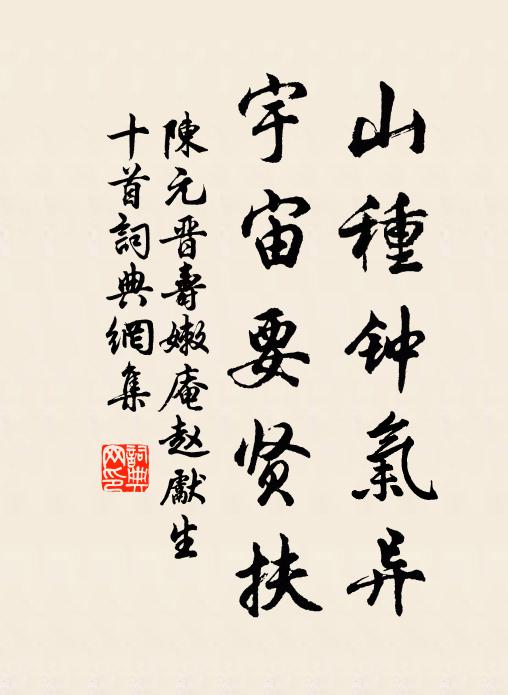 山種钟氣异
宇宙要贤扶
陳元晋壽嫩庵赵獻生
十首詞典網集
詞典網印